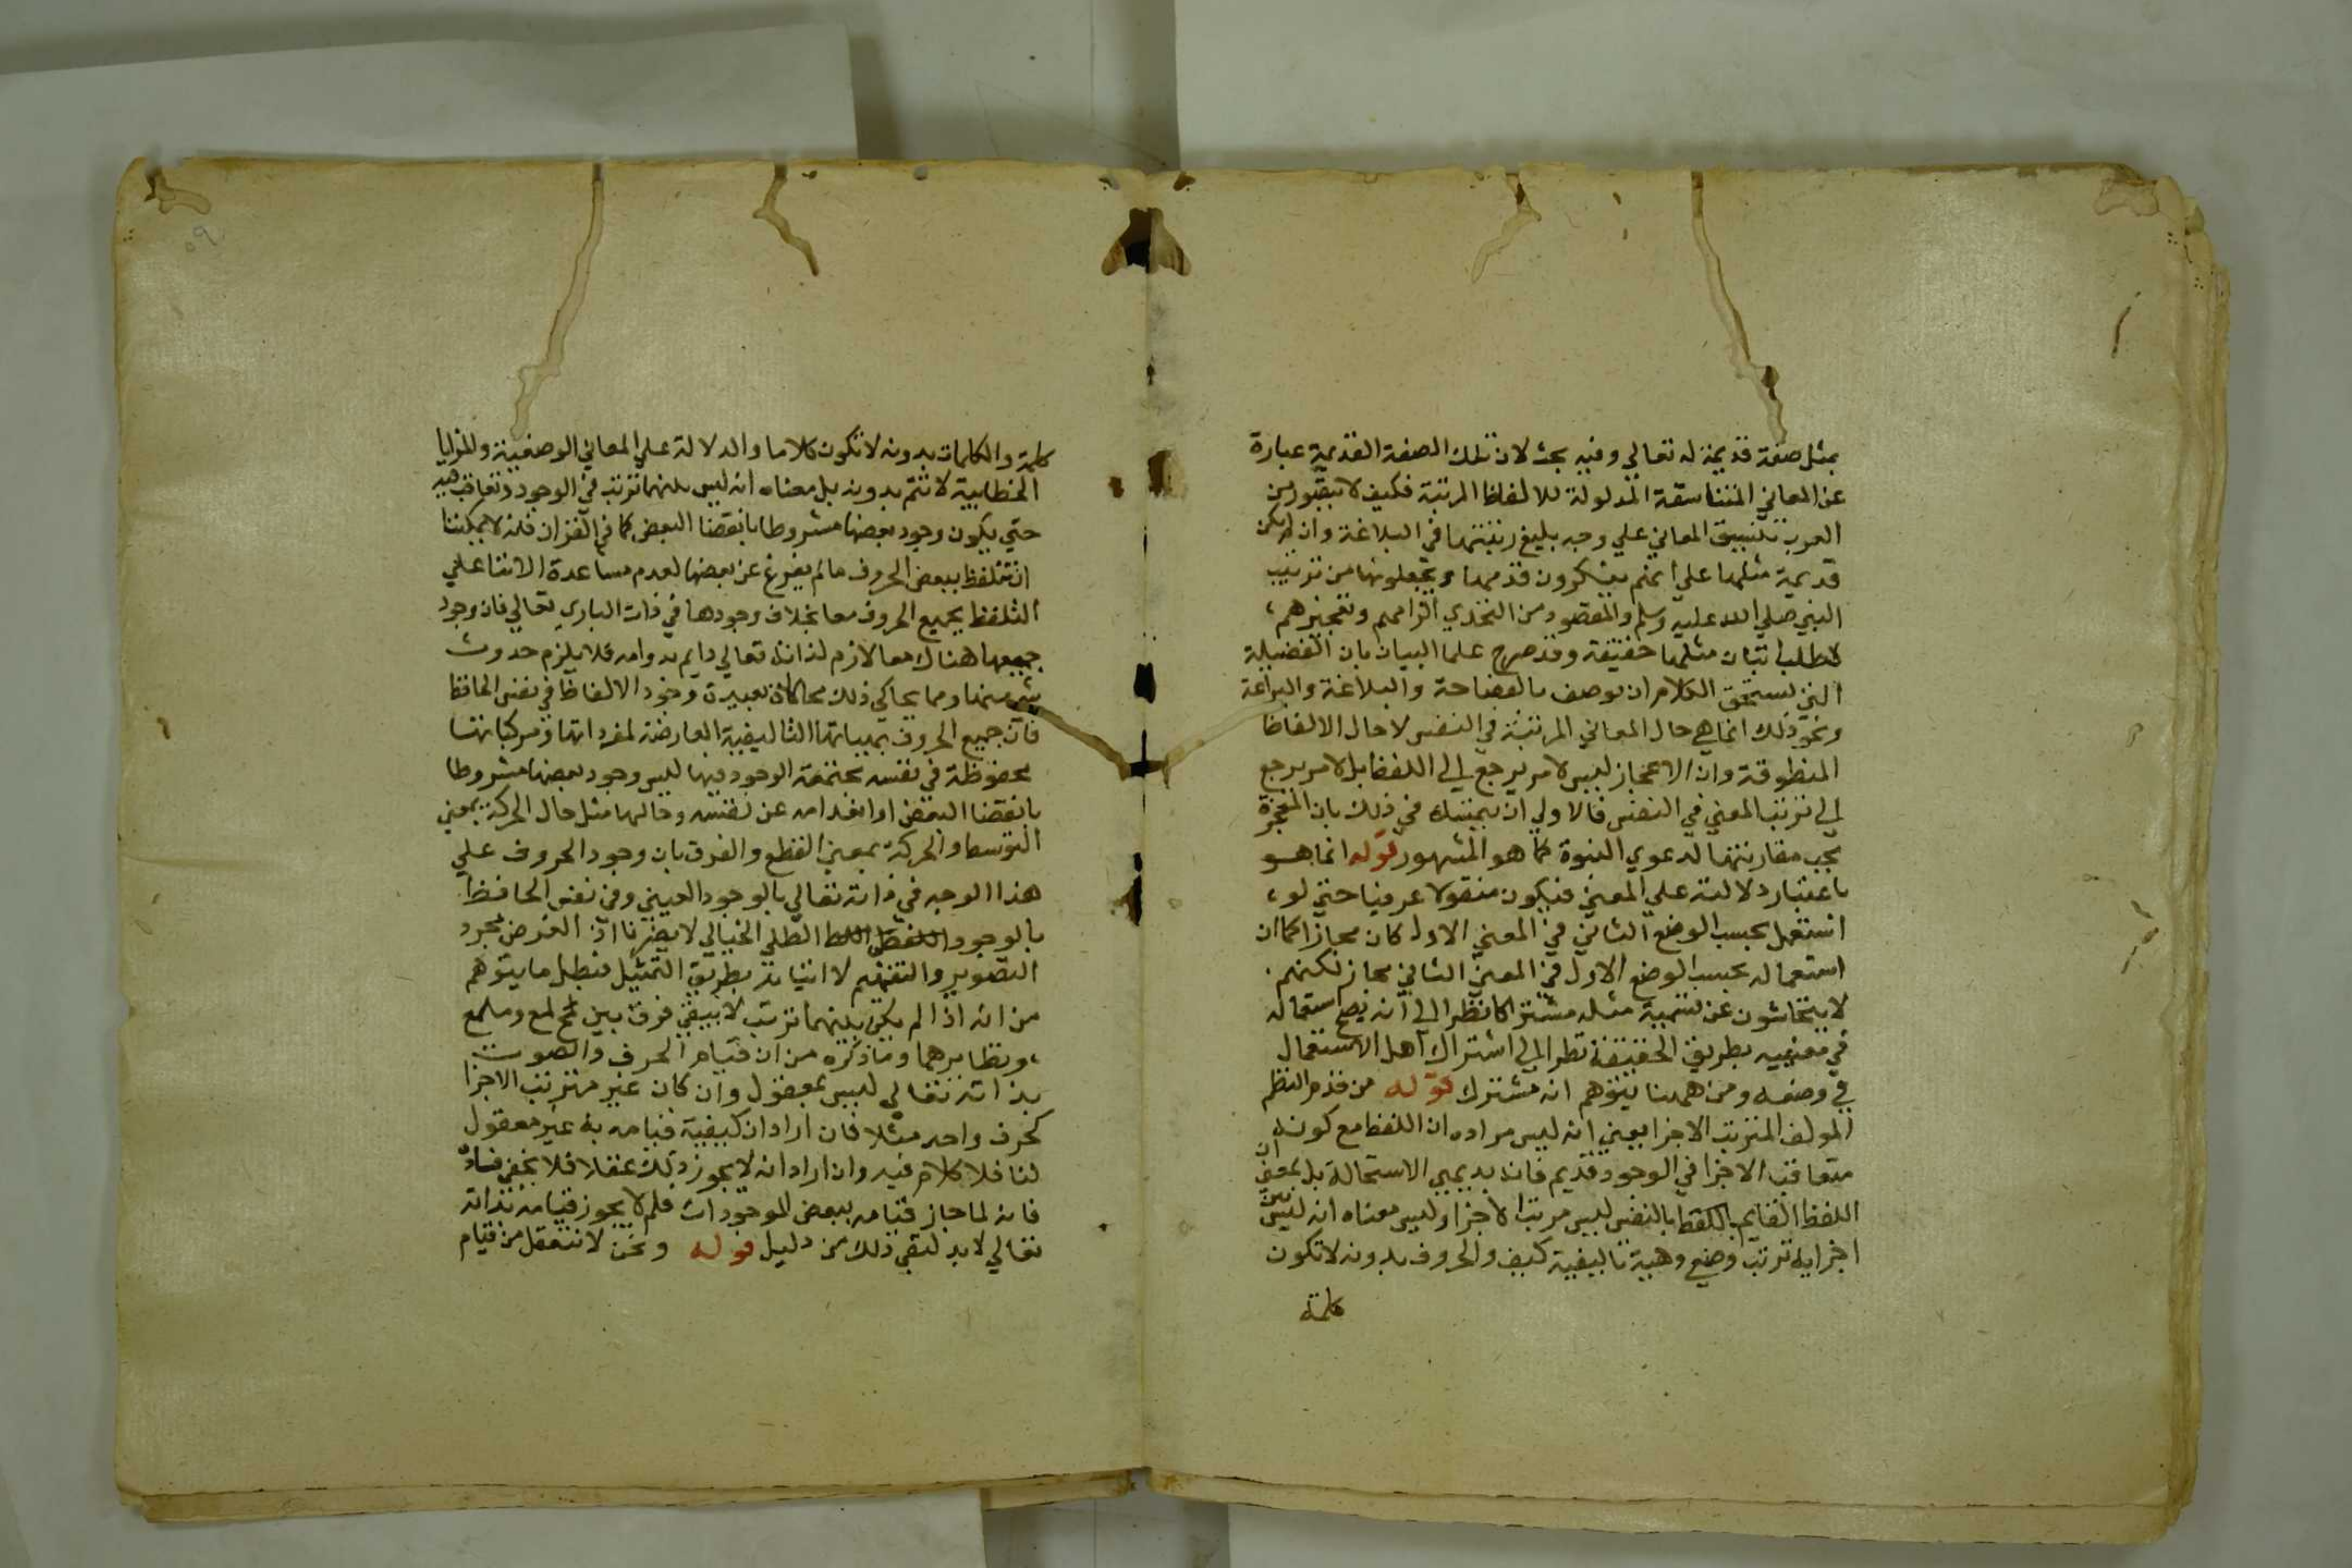 بمثل صفة قديمة له تعالي وفيه بحث لان تلك الصفة القديمة عبارة
عن المعاني المتناسقة المدلولة للالفاظ المرتبة فكيف لا يتصور من
العرب تنسيق المعاني علي وجه بليغ رتبتها في البلاغة وان لم يكن
قديمة مثلها علي انهم ينكرون قدمها ويجعلونها من ترتيب
النبي صلي الله عليه وسلم والمقصود من التحدي الزامهم وتعجيزهم
لا طلب اتيان مثلها حقيقة وقد صرح علما البيان بان الفضيلة
التي يستحق الكلام ان يوصف بالفصاحة والبلاغة والبراعة
ونحو ذلك انما هي حال المعاني المرتبة في النفس لا حال الالفاظ
المنطوقة وان الاعجاز ليس لامر يرجع الي اللفظ بل لامر يرجع
الي ترتب المعني في النفس فالاولي ان يتمسك في ذلك بان المعجزة
يجب مقارنتها لدعوي النبوة كما هو المشهور قوله انما هو
باعتبار دلالته علي المعني فيكون منقولا عرفيا حتي لو
استعمل بحسب الوضع الثاني في المعني الاول كان مجازا كما ان
استعماله بحسب الوضع الاول في المعني الثاني مجاز لكنهم
لا يتحاشون عن تسمية مثله مشتركا نظرا الي انه يصح استعماله
في معنييه بطريق الحقيقة نظرا الي اشتراك اهل الاستعمال
في وضعه ومن ههنا يتوهم انه مشترك قوله من قدم النظم
المولف المترتب الاجزا يعني انه ليس مراده ان اللفظ مع كونه
متعاقب الاجزا في الوجود قديم فانه بديهي الاستحالة بل بمعني ان
اللفظ القايم باللفظ بالنفس ليس مرتب الاجزا وليس معناه انه ليس بين
اجزايه ترتب وضعي وهيية تاليفية كيف والحروف بدونه لا تكون
كلمة
٥٩
كلمة والكلمات بدونه لا تكون كلاما والدلالة علي المعاني الوصفية والمزايا
الخطابية لا تتم بدونه بل معناه انه ليس بينهما ترتب في الوجود وتعاقب فيه
حتي يكون وجود بعضها مشروطا بانقضا البعض كما في القران فانه لا يمكننا
ان نتلفظ ببعض الحروف ما لم يفرغ عن بعضها لعدم مساعدة الالتنا علي
التلفظ بجميع الحروف معا بخلاف وجودها في ذات الباري تعالي فان وجود
جميعها هناك معا لازم لذاته تعالي دايم بدوامه فلا يلزم حدوث
شي منها ومما يحاكي ذلك محاكاة بعيدة وجود الالفاظ في نفس الحافظ
فان جميع الحروف بهيياتها التاليفية العارضة لمفرداتها ومركباتها
محفوظة في نفسه مجتمعة الوجود فيها ليس وجود بعضها مشروطا
بانقضا البعض او انعدامه عن نفسه وحالها مثل حال الحركة بمعني
التوسط والحركة بمعني القطع والفرق بان وجود الحروف علي
هذا الوجه في ذاته تعالي بالوجود العيني وفي نفس الحافظ
بالوجود الظلي الخيالي لا يضرنا اذ الغرض مجرد
التصوير والتفهيم لا اثباته بطريق التمثيل فبطل ما يتوهم
من انه اذا لم يكن بينهما ترتب لا يبقي فرق بين لمع وملع
ونظايرهما وما ذكره من ان قيام الحرف والصوت
بذاته تعالي ليس بمعقول وان كان غير مترتب الاجزا
كحرف واحد مثلا فان اراد ان كيفية قيامه به غير معقول
لنا فلا كلام فيه وان اراد انه لا يجوز ذلك عقلا فلا يخفي فساده
فانه لما جاز قيامه ببعض الموجودات فلم لا يجوز قيامه بذاته
تعالي لا بد لنفي ذلك من دليل قوله ونحن لا نتعقل من قيام